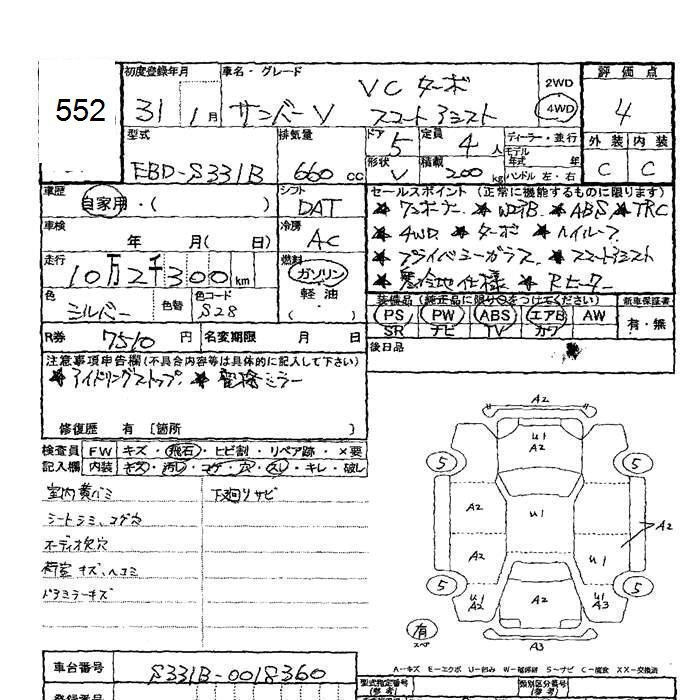 552
初度登録年月 車名・グレード 評価点
31 1月 サンバーV VC ターボ スマートアシスト 2WD 4WD 4
型式 排気量 ドア 定員 ディーラー・並行 外装 内装
EBD-S331B 660cc 5 4人 モデル年式 年 C C
形状 V 積載 200kg ハンドル 左・右
車歴 シフト セールスポイント (正常に機能するものに限ります)
自家用・( ) DAT ★ワンオーナー ★WエアB ★ABS ★TRC
車検 冷房 ★4WD ★ターボ ★ハイルーフ
年 月( 日) AC ★プライバシーガラス ★スマートアシスト
走行 燃料 ★寒冷地仕様 ★Rヒーター
10万2千300km ガソリン
軽・油
( )
色 色替 色コード 装備品 (純正品に限り○をつけてください) 新車保証書
シルバー S28 PS PW ABS エアB AW 有・無
SR ナビ TV カワ
R券 7510円 名変期限 月 日 後日品
注意事項申告欄(不具合内容等は具体的に記入して下さい)
★アイドリングストップ ★電格ミラー
修復歴 有 〔箇所 〕
検査員 FW キズ・飛石・ヒビ割・リペア跡・×要
記入欄 内装 キズ・汚レ・コゲ・穴・スレ・キレ・破レ
室内黄バミ 下廻りサビ
シートシミ、コゲ穴
オーディオ欠穴
荷室キズ、ヘコミ
ドアミラーキズ
A2
U1
A2
5 5
A2 U1 A2
A2 U1
5 5
U1
A2 A2 U1
A3
有
スペア
A3
A-キズ E-エクボ U-凹み W-補修跡 S-サビ C-腐食 XX-交換済
車台番号 S331B-0018360
型式指定番号 (参考) 類別区分番号 (参考)
登録番号